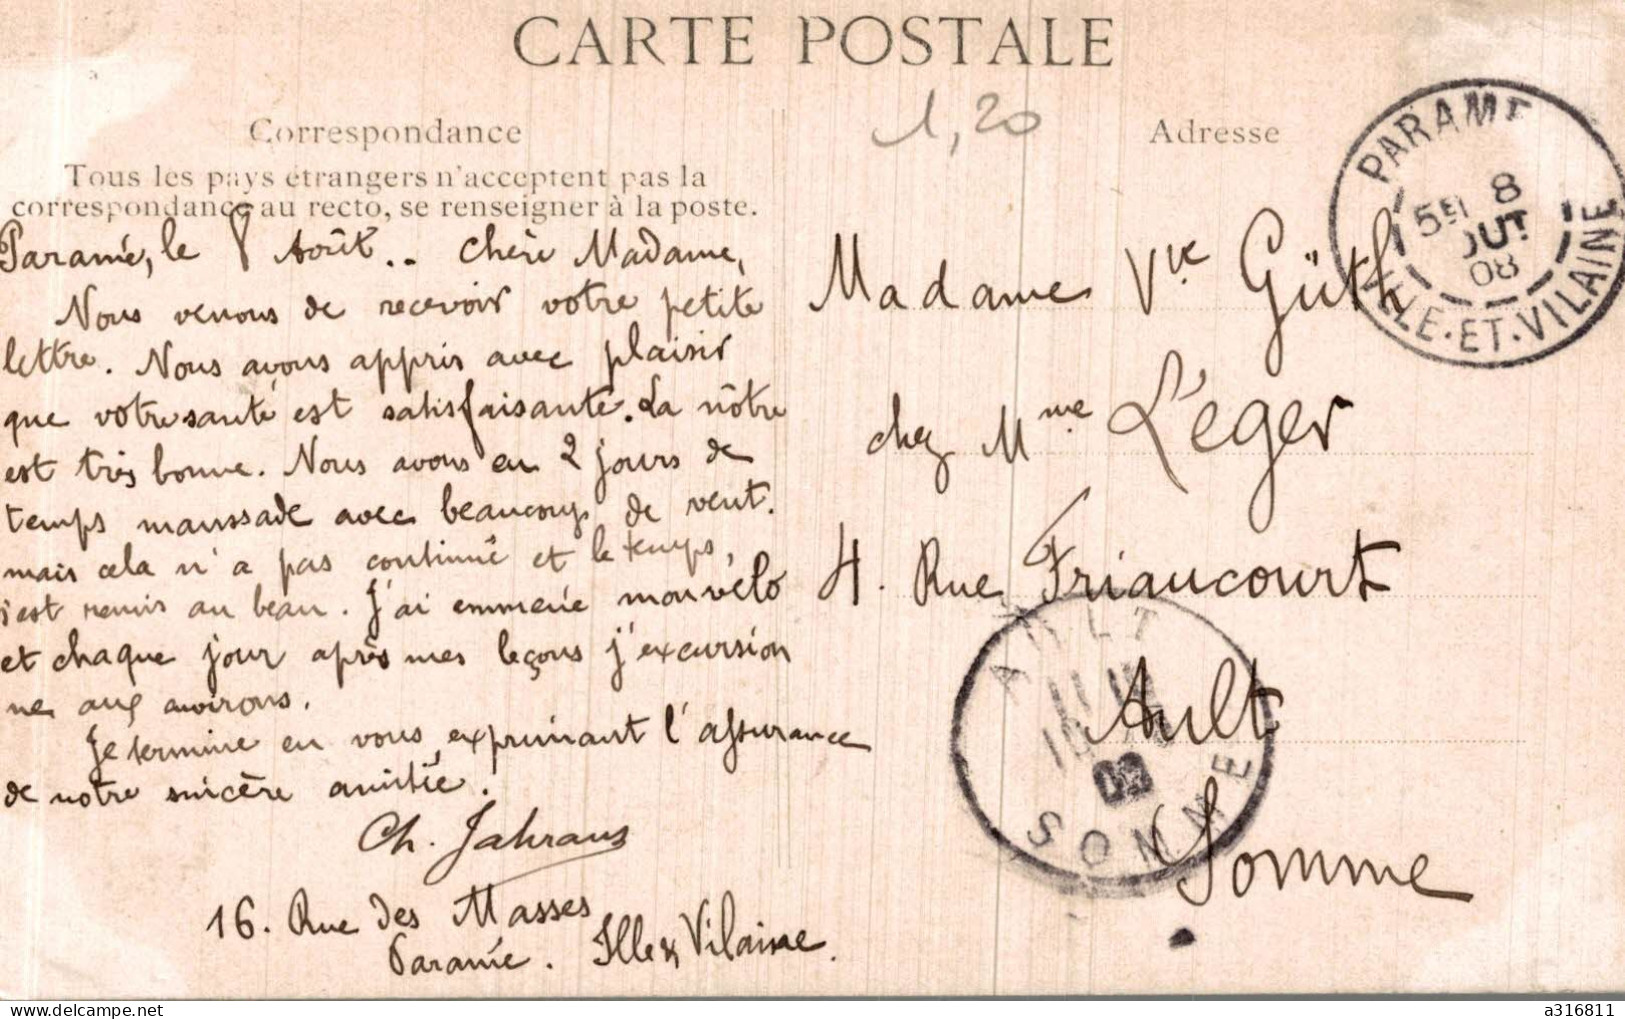 CARTE POSTALE
1,20
Correspondance
Tous les pays étrangers n'acceptent pas la
correspondance au recto, se renseigner à la poste.
Paramé, le 8 Août.. Chère Madame,
Nous venons de recevoir votre petite
lettre. Nous avons appris avec plaisir
que votre santé est satisfaisante. La nôtre
est très bonne. Nous avons eu 2 jours de
temps maussade avec beaucoup de vent.
mais cela n'a pas continué et le temps,
s'est remis au beau. J'ai emmené mon vélo
et chaque jour après mes leçons j'excursion
ne aux environs.
Je termine en vous exprimant l'assurance
de notre sincère amitié.
Ch. Jahraus
16. Rue des Masses
Paramé. Ille & Vilaine.
Adresse
Madame Vve Güth
chez Mme Léger
4. Rue Friaucourt
Ault
Somme
PARAME
5E 8
OUT
08
ILLE-ET-VILAINE
AULT
SOMME
a316811